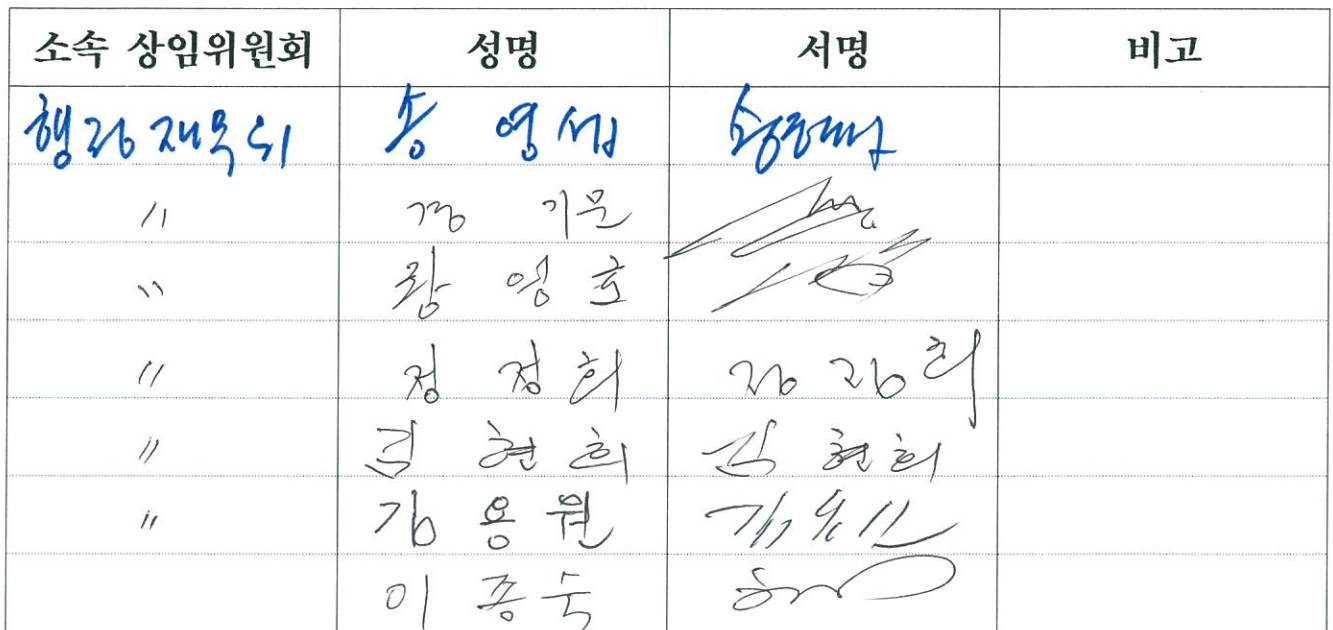 소속 상임위원회 성명 서명 비고
행정재무위 송영섭
〃 기문
〃 영호
〃 정정희 정정희
〃 김현희 김현희
〃 김용원
이종숙